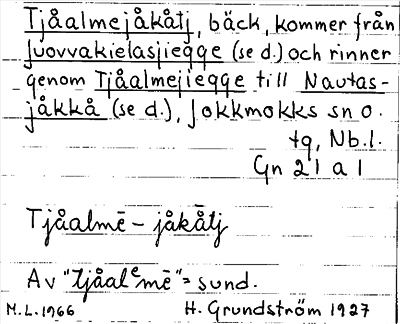 Tjåalmejåkåtj, bäck, kommer från
Juovvakielasjiegge (se d.) och rinner
genom Tjåalmejiegge till Nautas-
jåkkå (se d.), Jokkmokks sn o.
tg, Nb.l.
Gn 21 a 1
Tjåalmē – jåkåtj
Av "tjåalᵉmē" = sund.
M.L. 1966 H. Grundström 1927